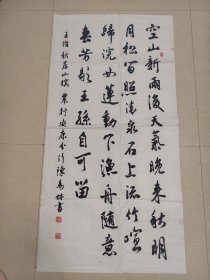 空山新雨後天氣晚来秋明
月松間照清泉石上流竹喧
歸浣女蓮動下漁舟隨意
春芳歇王孫自可留
王維秋居山暝 農行安康分行陳書